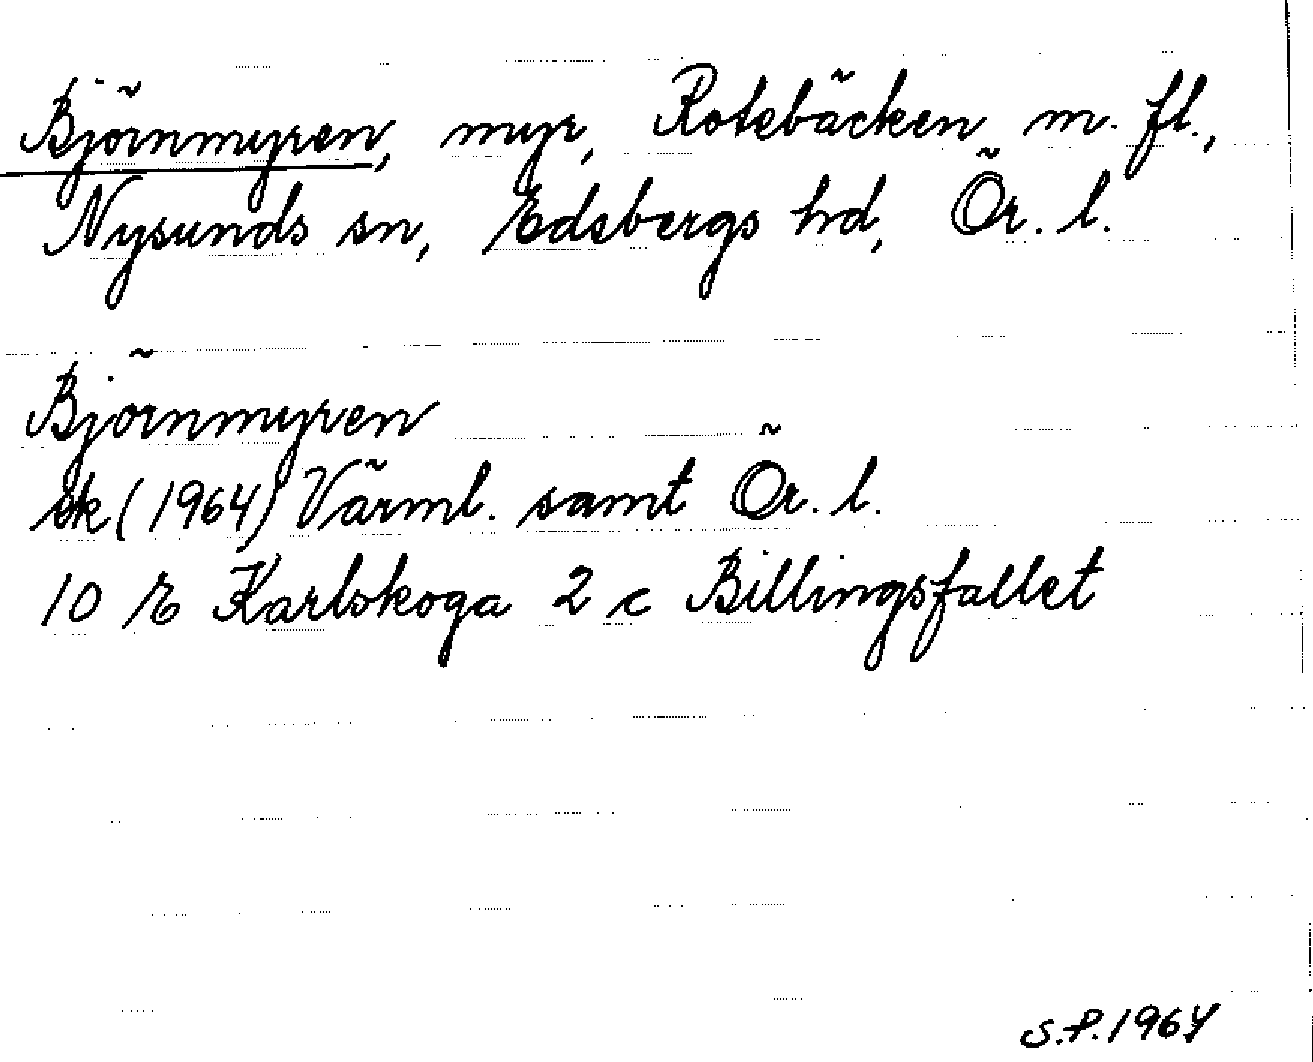 Björnmyren, myr, Rotebäcken m. fl.,
Nysunds sn, Edsbergs hd, Ör. l.
Björnmyren
ek (1964) Värml. samt Ör. l.
10 E Karlskoga 2 c Billingsfallet
S.P. 1964